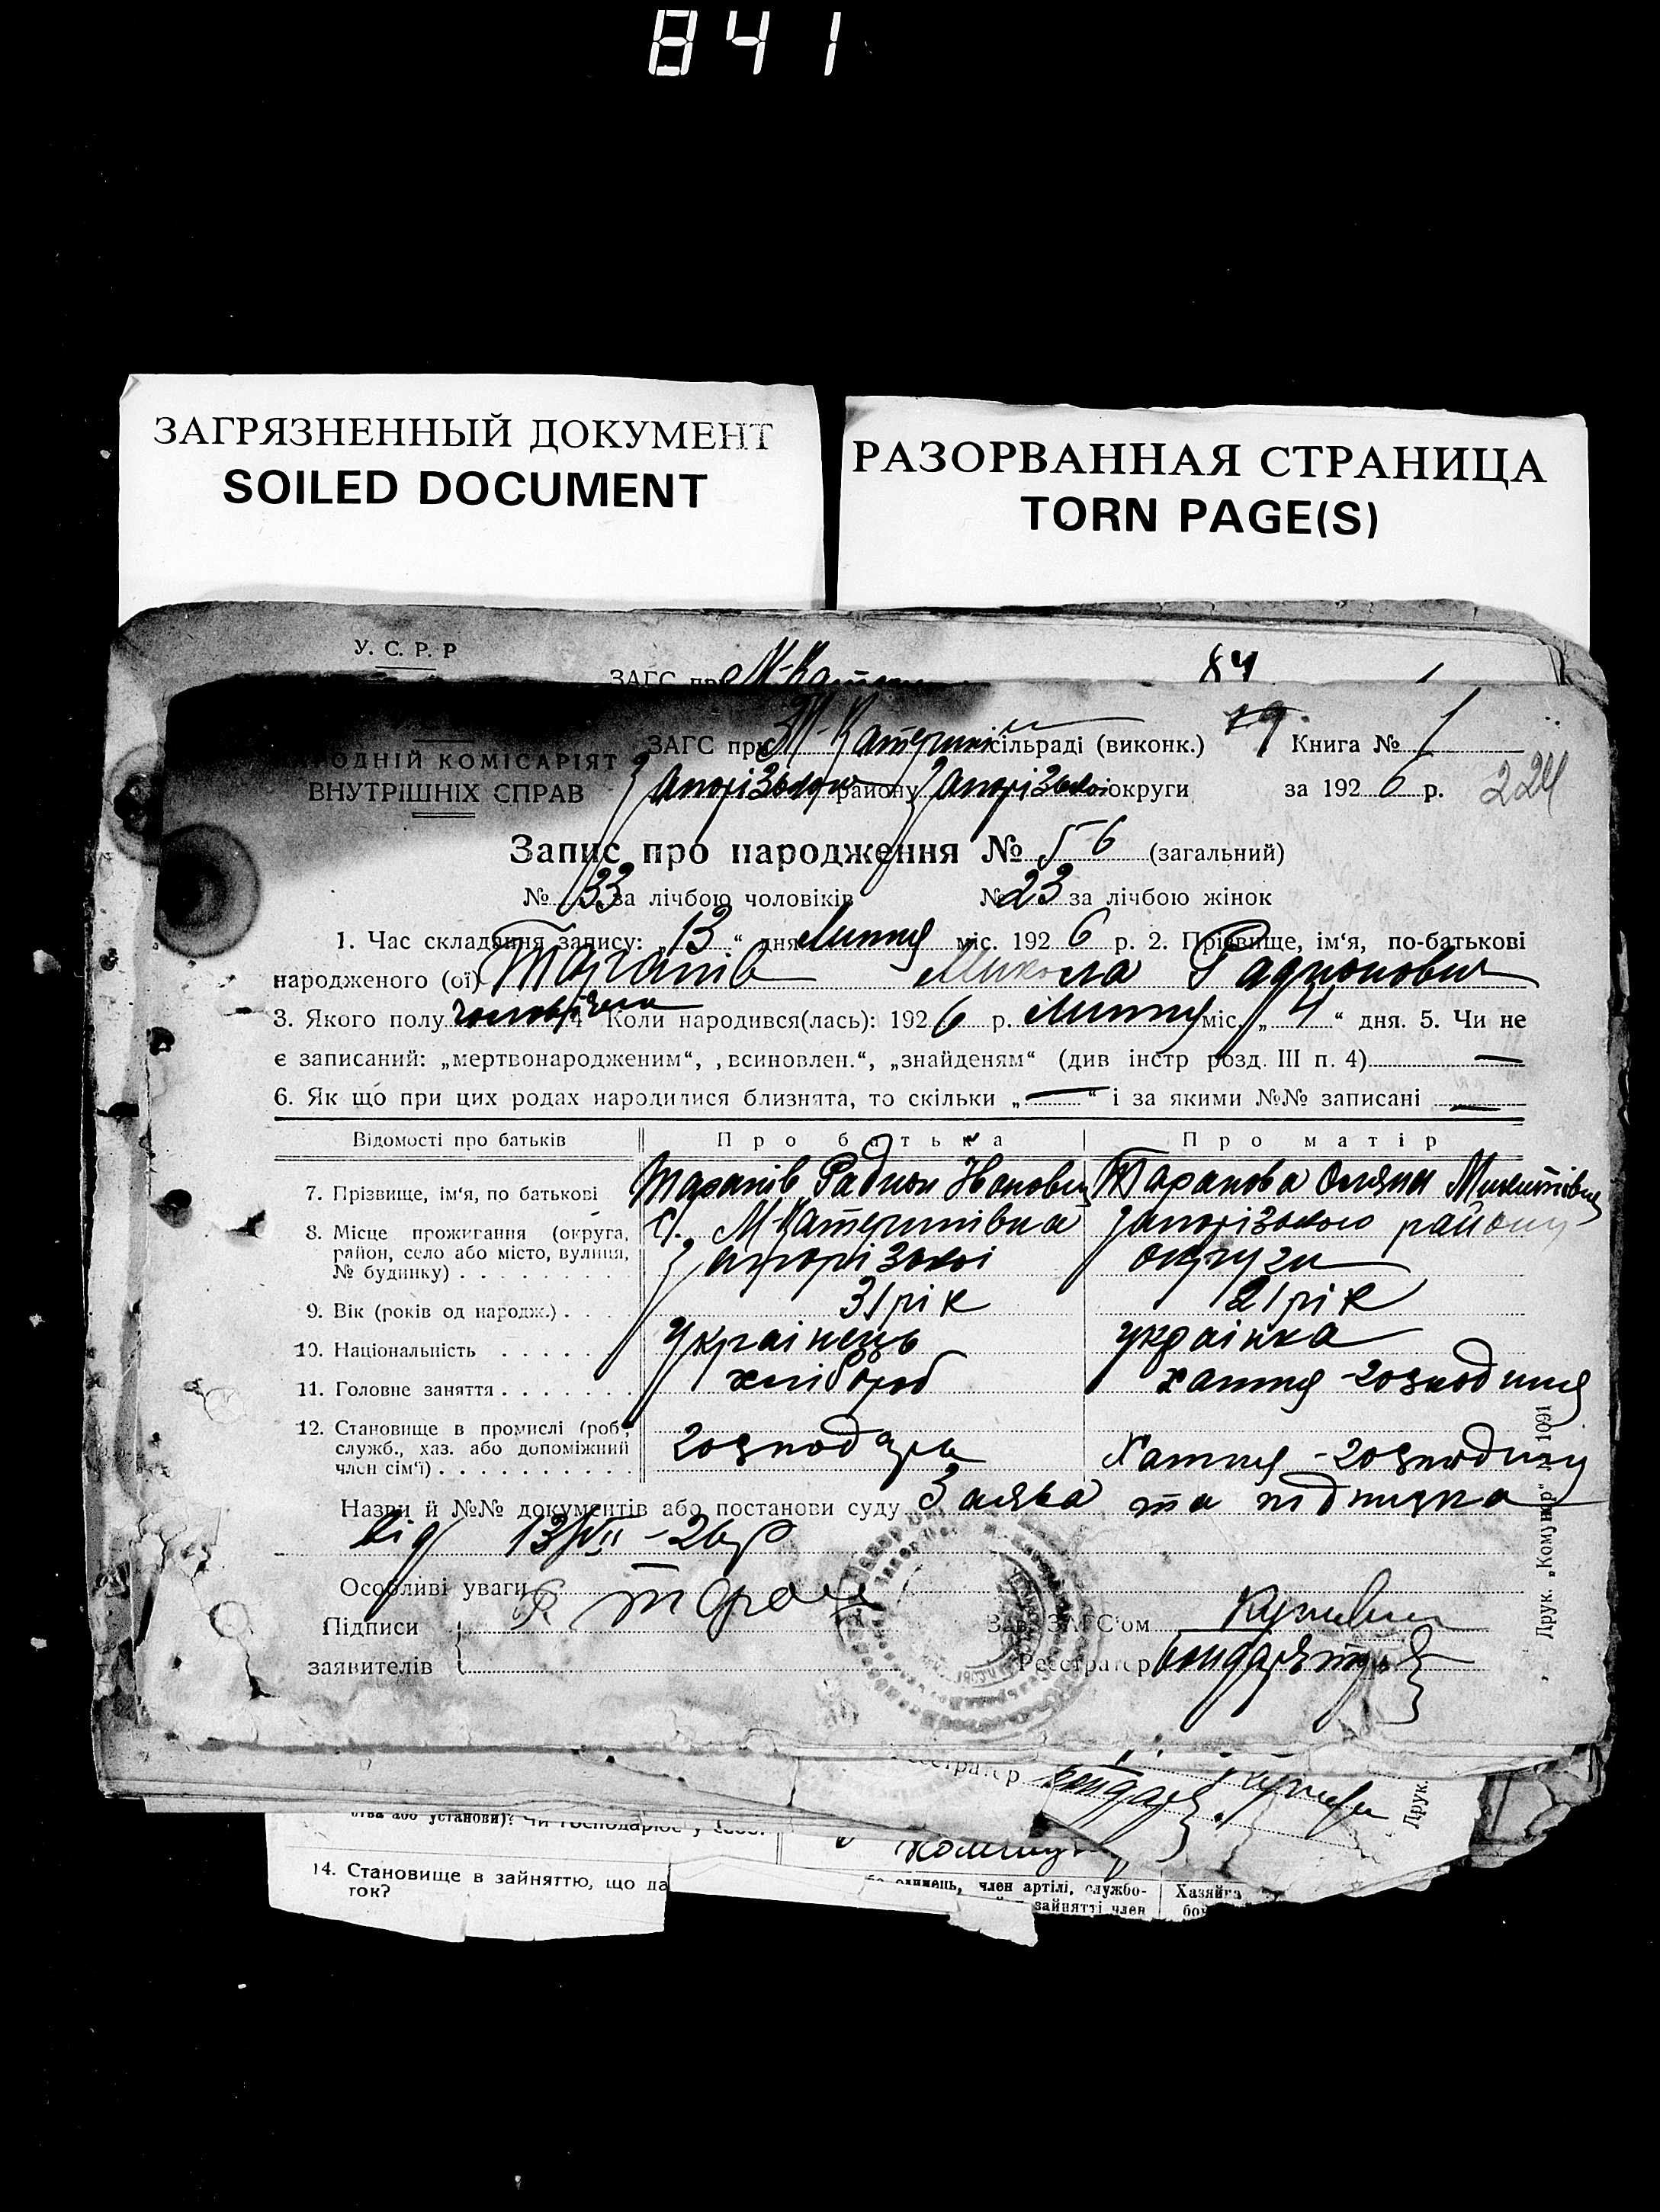 841
ЗАГРЯЗНЕННЫЙ ДОКУМЕНТ
SOILED DOCUMENT
РАЗОРВАННАЯ СТРАНИЦА
TORN PAGE(S)
У. С. Р. Р
ЗАГС при М-Катери 84
ЗАГС при М-Катерин сільраді (виконк.) 79 Книга № 1
ОДНІЙ КОМІСАРІЯТ
ВНУТРІШНІХ СПРАВ
Запорізького району Запорізької округи за 1926 р. 224
Запис про народження № 56 (загальний)
№ 33 за лічбою чоловіків № 23 за лічбою жінок
1. Час складання запису: „13“ дня Липня міс. 1926 р. 2. Прізвище, ім‘я, по-батькові
народженого (ої) Таранів Микола Радионович
3. Якого полу чоловічого 4 Коли народився(лась): 1926 р. Липня міс. „4“ дня. 5. Чи не
є записаний: „мертвонародженим“, „всиновлен.“, „знайденям“ (див інстр розд. III п. 4) —
6. Як що при цих родах народилися близнята, то скільки „—“ і за якими №№ записані —
Відомості про батьків Про батька Про матір
7. Прізвище, ім‘я, по батькові Таранів Радион Таранова Оляна Микитівна
8. Місце проживання (округа, район, село або місто, вулиця, № будинку) с. М-Катеринівка Запорізького району
Запорізької округи
9. Вік (років од народж.) 31 рік 21 рік
10. Національність Українець українка
11. Головне заняття хлібороб хатня-господиня
12. Становище в промислі (роб., служб., хаз. або допоміжний член сім‘ї) господарь Хатня-господиня
Назви й №№ документів або постанови суду Заява та підписка
від 13/VII-26 р
Особливі уваги
Підписи
заявителів
Зав. ЗАГС‘ом
Реєстратор
Друк. „Комунар“ 1091
Реєстратор
Друк.
14. Становище в зайняттю, що да
ток?
член артілі, службо-
зайнятті член
Хазяїна